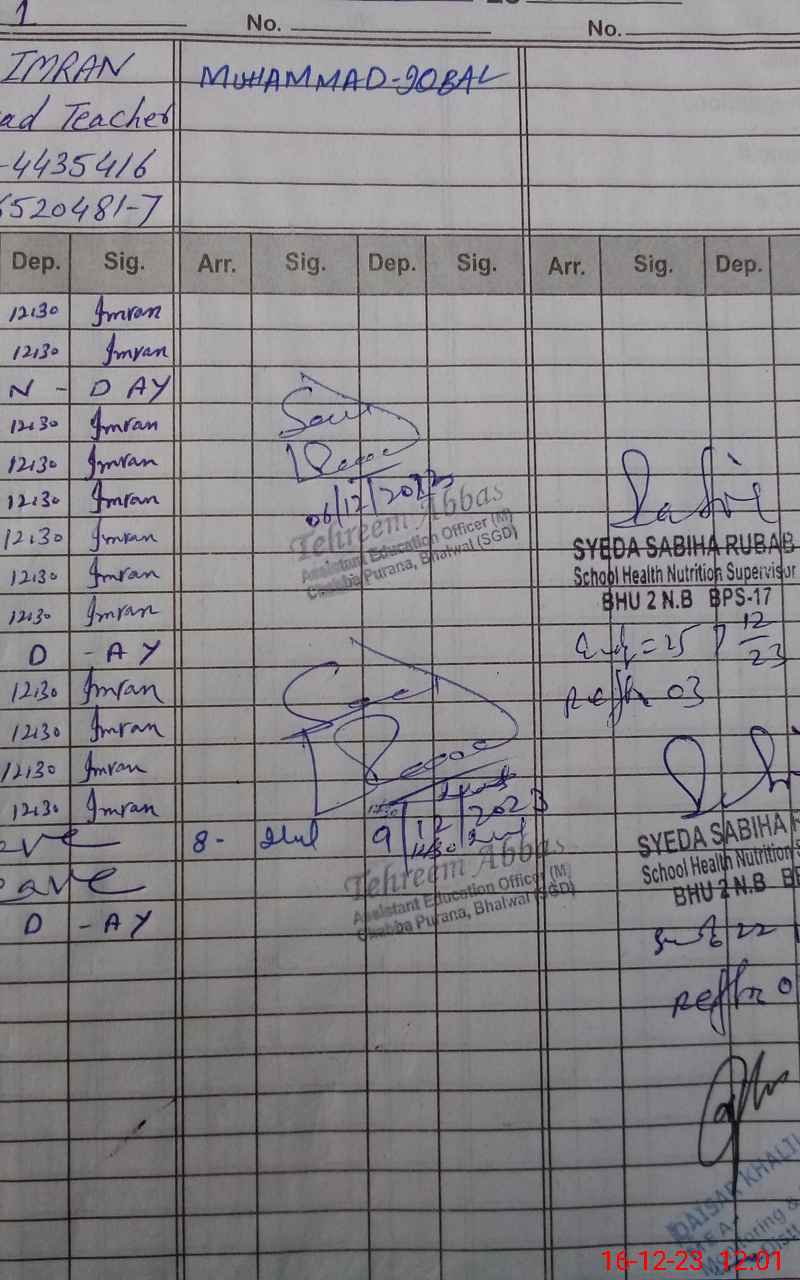 1
No.
No.
IMRAN MUHAMMAD-IQBAL
ad Teacher
-4435416
6520481-7
Dep. Sig. Arr. Sig. Dep. Sig. Arr. Sig. Dep.
12:30 Imran
12:30 Imran
N - D AY
12:30 Imran
12:30 Imran
12:30 Imran
06/12/2023
12:30 Imran
Tehreem Abbas
Assistant Education Officer (M)
Chabba Purana, Bhalwal (SGD)
SYEDA SABIHA RUBAB
12:30 Imran
School Health Nutrition Supervisor
12:30 Imran
BHU 2 N.B BPS-17
D - AY
= 25 12
23
12:30 Imran
03
12:30 Imran
12:30 Imran
12:30 Imran
9/12/2023
8-
12:30
Tehreem Abbas
Assistant Education Officer (M)
Chabba Purana, Bhalwal (SGD)
SYEDA SABIHA
School Health Nutrition S
BHU 2 N.B
eave
D - AY
22
QAISAR KHALI
16-12-23 12:01